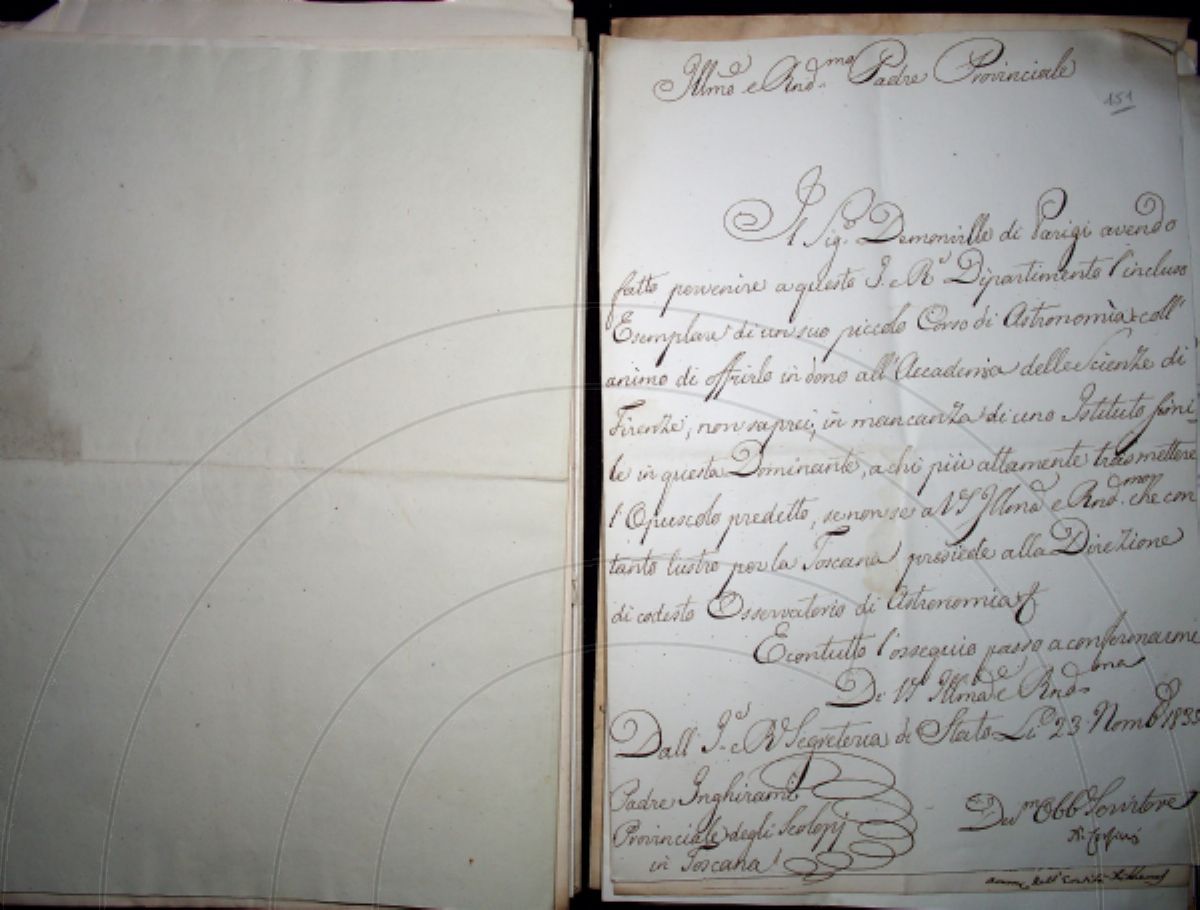 Illmo e Rndmo Padre Provinciale
151
Il Sigr Demonville di Parigi avendo
fatto pervenire a questo I. e R. Dipartimento l'incluso
Esemplare di un suo piccolo Corso di Astronomia coll'
animo di offrirlo in dono all'Accademia delle Scienze di
Firenze, non saprei, in mancanza di uno Istituto simi-
le in questa Dominante, a chi più attamente trasmettere
l'Opuscolo predetto, se non se a VS Illma e Rndma che con
tanto lustro per la Toscana presiede alla Direzione
di codesto Osservatorio di Astronomia
E con tutto l'ossequio passo a confermarmi
Di VS Illma e Rndma
Dall' I. e R. Segreteria di Stato Li 23 Nombre 1835
Padre Inghirami
Provinciale degli Scolopj
in Toscana
Devmo Obb Servitore